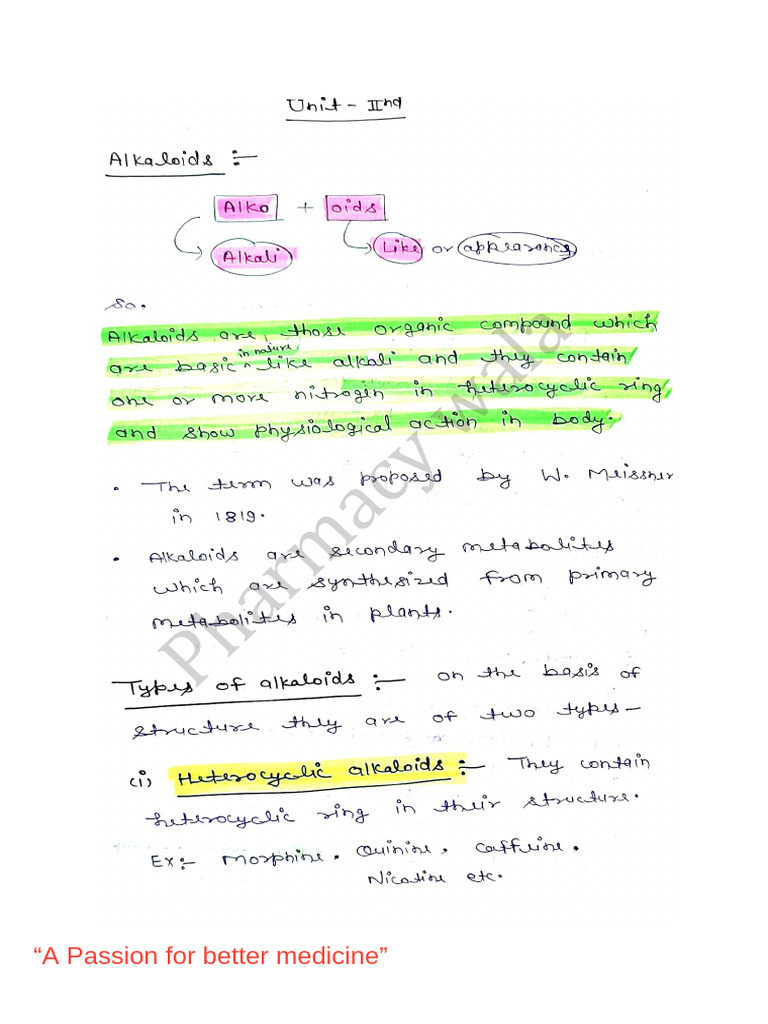 Unit - IInd
Alkaloids :-
Alko + oids
Alkali Like or appearance
So.
Alkaloids are those organic compound which
are basic in nature like alkali and they contain
one or more nitrogin in heterocyclic ring
and show physiological action in body.
• The term was proposed by W. Meissner
in 1819.
• Alkaloids are secondary metabolites
which are synthesized from primary
metabolites in plants.
Types of alkaloids :- on the basis of
structure they are of two types -
(i) Heterocyclic alkaloids :- They contain
heterocyclic ring in their structure.
Ex:- Morphine. Quinine, Caffeine.
Nicotine etc.
Pharmacy wala
“A Passion for better medicine”